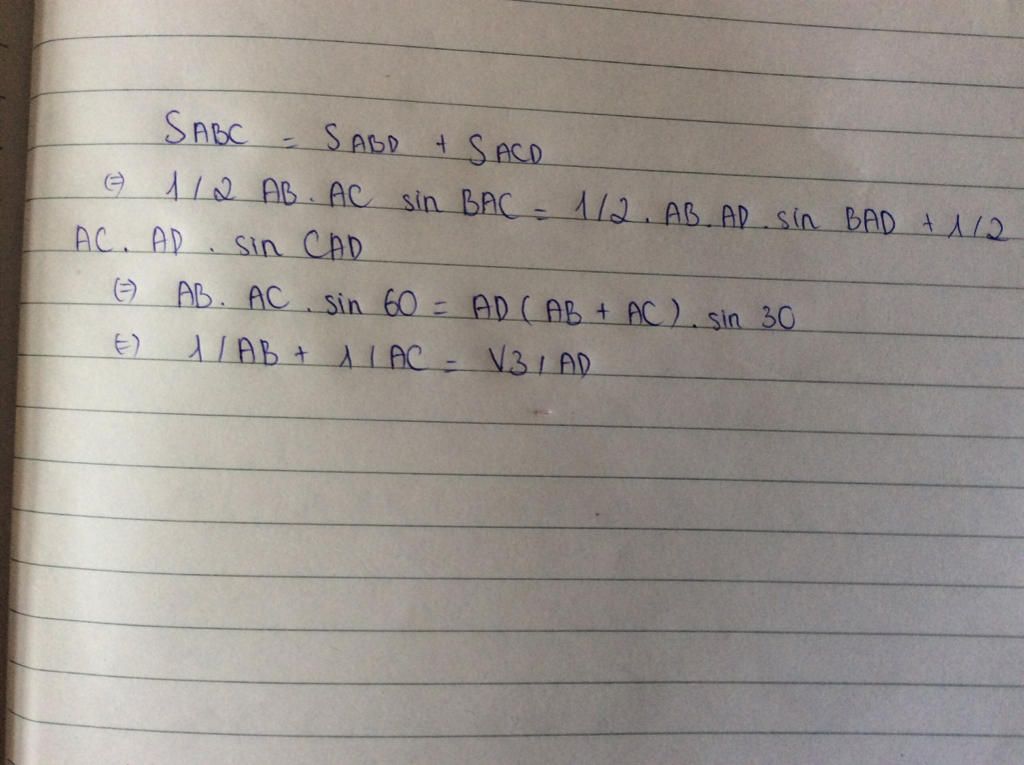 SABC = SABD + SACD
(=) 1/2 AB. AC sin BAC = 1/2. AB. AD. sin BAD + 1/2
AC. AD. sin CAD
(=) AB. AC. sin 60 = AD (AB + AC). sin 30
(=) 1/AB + 1/AC = √3/AD